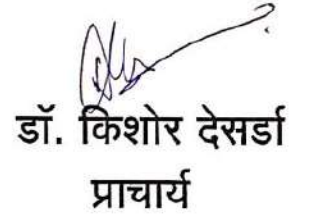 डॉ. किशोर देसर्डा
प्राचार्य